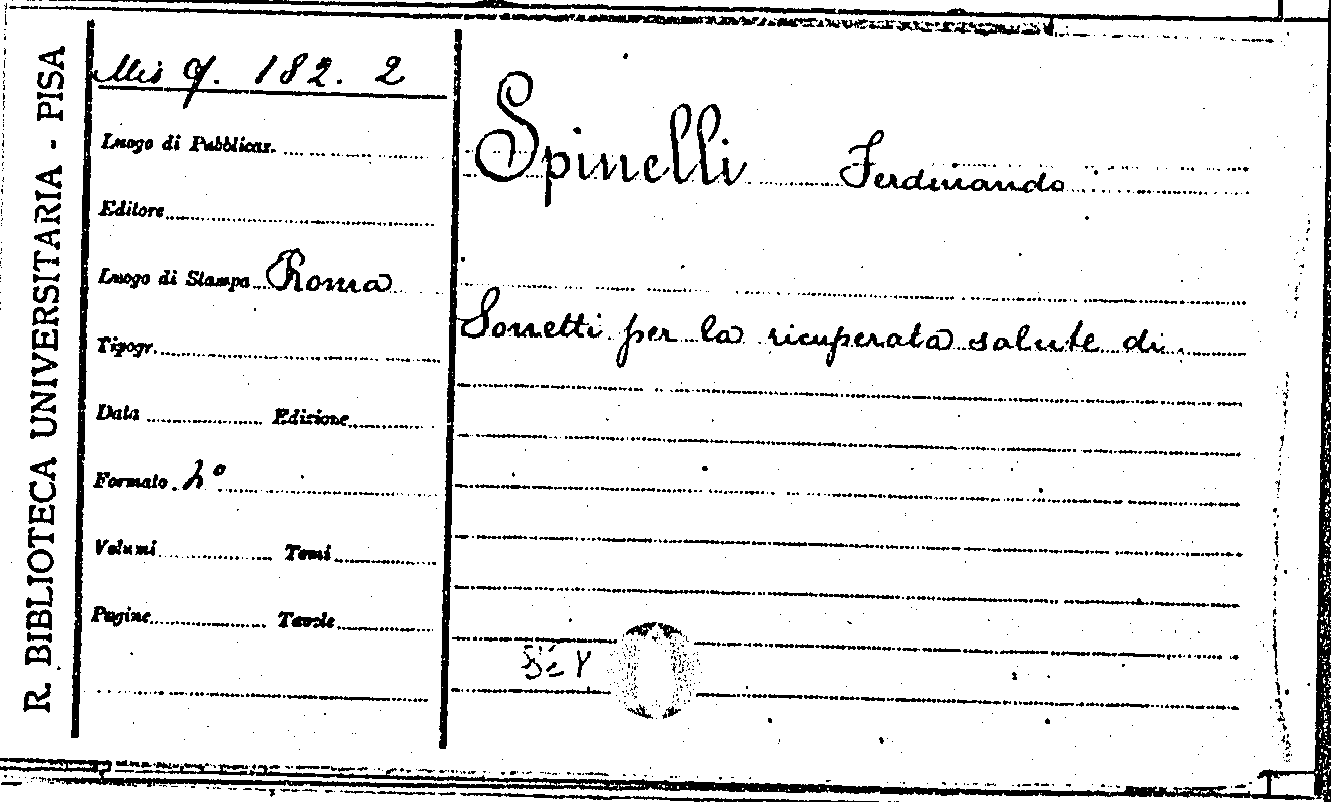 R. BIBLIOTECA UNIVERSITARIA - PISA
Mis q. 182. 2
Luogo di Pubblicaz.
Editore
Luogo di Stampa Roma
Tipogr.
Data Edizione
Formato 4°
Volumi Tomi
Pagine Tavole
Spinelli Ferdinando
Sonetti per la ricuperata salute di